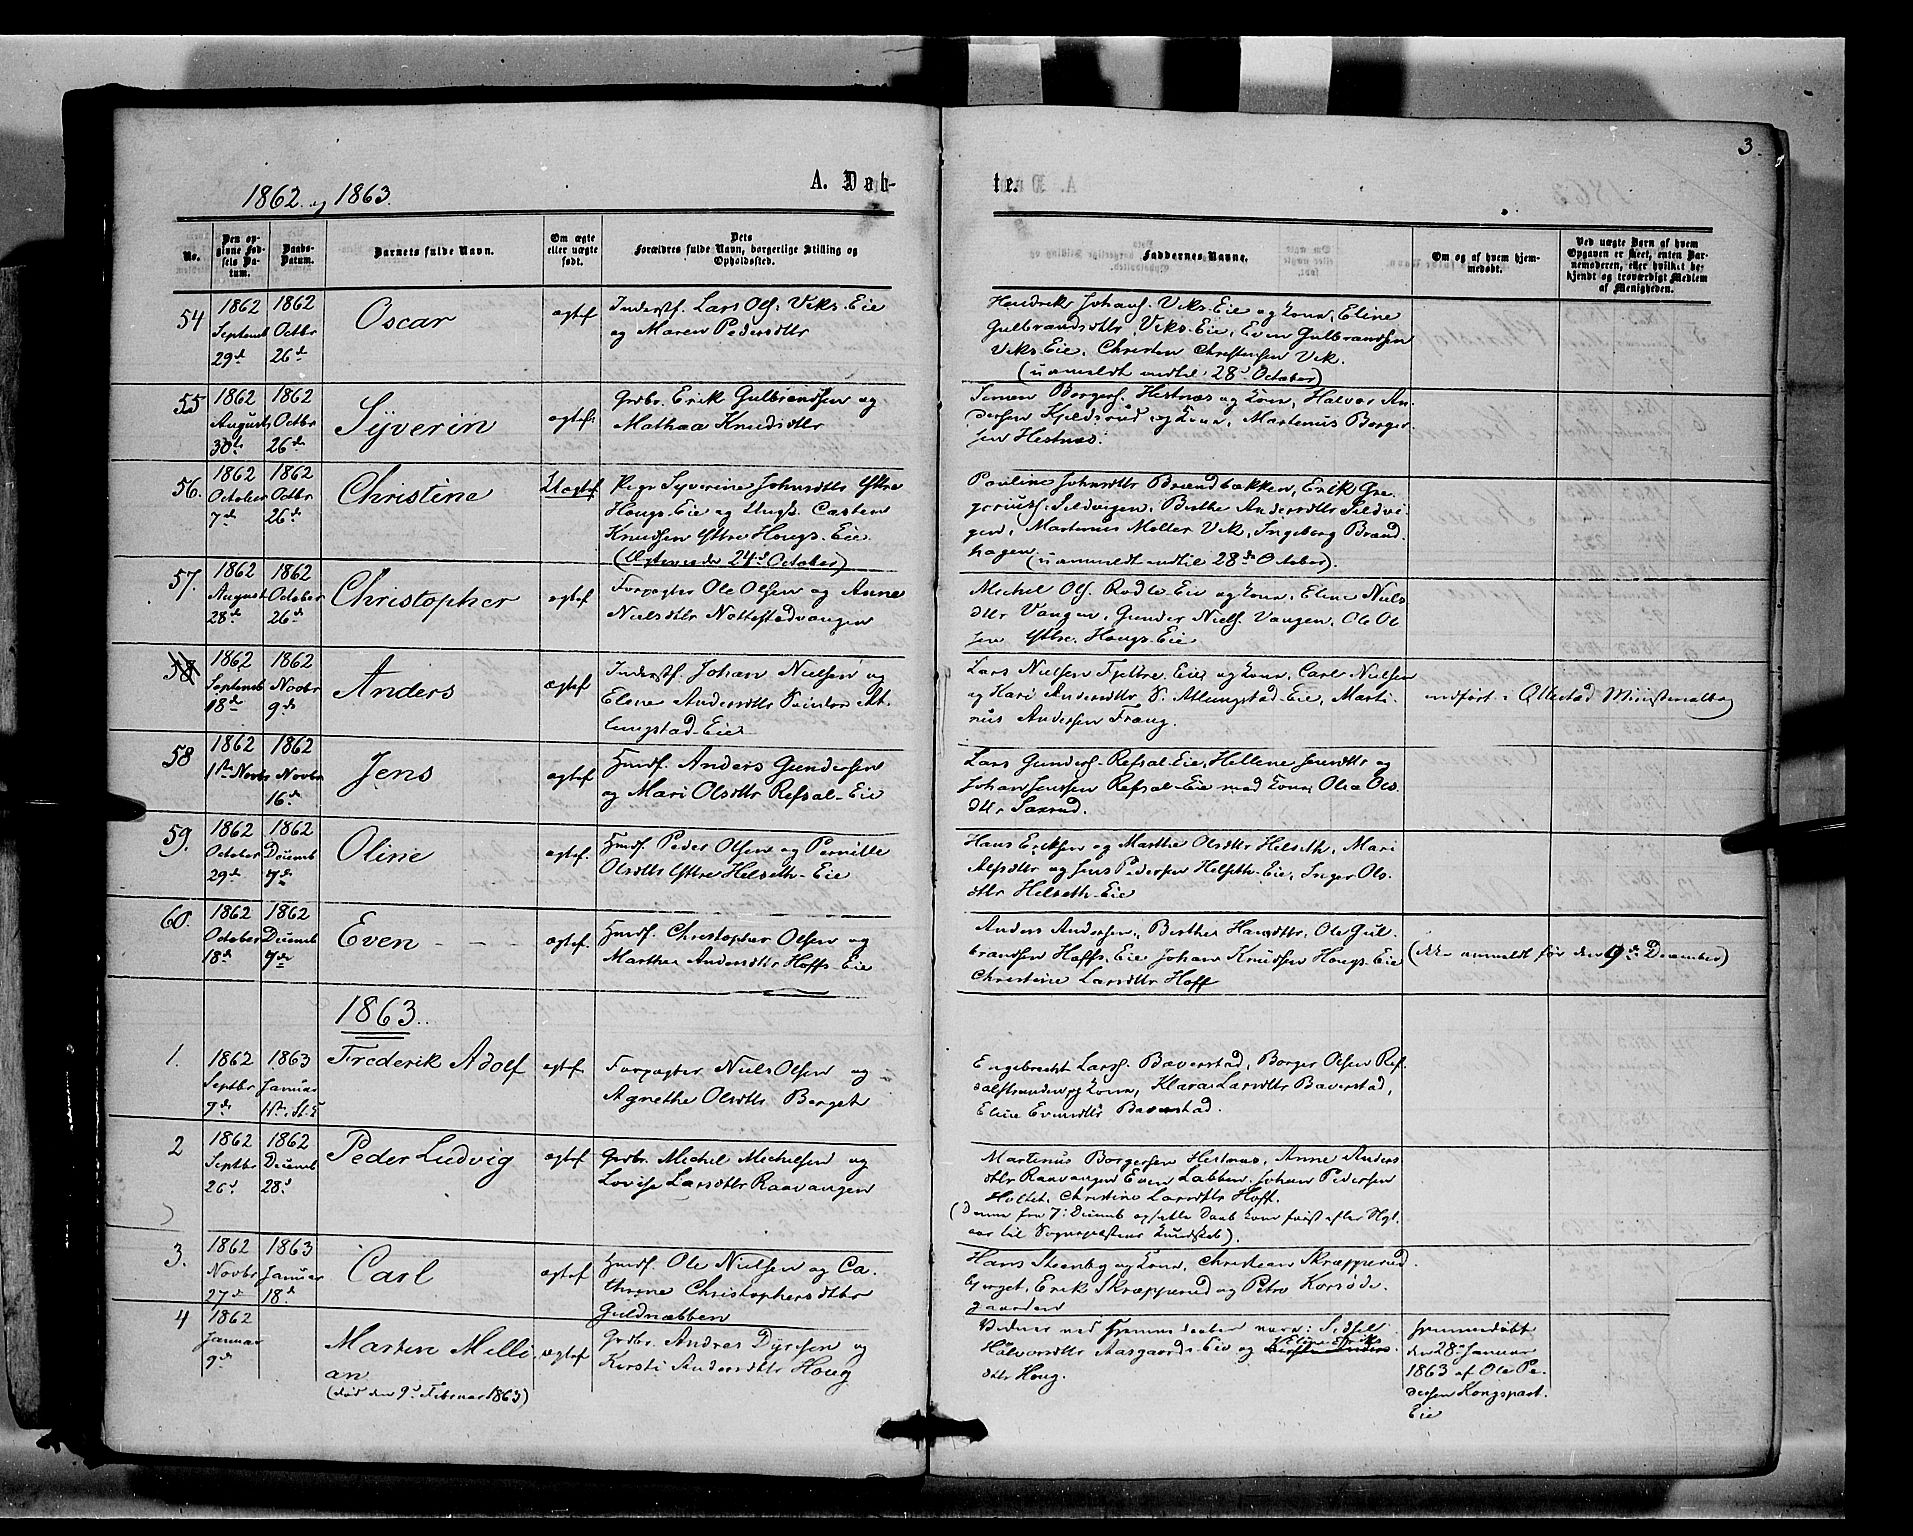 3.
1862 og 1863.
A. Døb-
te.
No.
Den op-
givne Fød-
sels Da-
tum.
Daabs-
Datum.
Barnets fulde Navn.
Om ægte
eller uægte
født.
Dets
Forældres fulde Navn, borgerlige Stilling og
Opholdssted.
Faddernes Navne.
Om og af hvem hjem-
medøbt.
Ved uægte Barn af hvem
Opgaven er skeet, enten Bar-
nemoderen, eller hvilket be-
kjendt og troværdigt Medlem
af Menigheden.
54
1862
Septemb
29de
1862
Octbr
26de
Oscar
ægtef.
Inderstf. Lars Ols. Viks-Eie
og Maren Pedersdtr
Hendrik Johans. Viks-Eie og Kone, Eline
Gulbrandsdtr, Viks-Eie, Even Gulbrandsen
Viks-Eie, Christen Christensen Vik.
(uanmeldt indtil 28de October)
55
1862
August
30te
1862
Octbr
26de
Syverin
ægtef.
Grdbr. Erik Gulbrandsen og
Mathea Knudsdtr
Simen Borgers. Hestnæs og Kone, Halvor An-
dersen Kjeldsrud og Kone, Martinus Borger
sen Hestnæs.
56.
1862
October
7de
1862
Octbr
26de
Christine
Uægtef.
Pige Syverine Johnsdtr Østre
Hougs-Eie og Ungk. Casten
Knudsen Østre Hougs-Eie
(Ægteviede 24de October)
Pauline Johnsdtr Brændbækken, Erik Gre-
goriusf. Sildvigen, Berthe Andersdtr Sildvi-
gen, Martinus Møller Vik, Ingeborg Brænd-
hagen. (uanmeldt indtil 28de October).
57.
1862
August
28de
1862
October
26de
Christopher
ægtef.
Forpagter Ole Olsen og Anne
Nielsdtr Nøttestadvangen
Michel Ols. Rødle-Eie og Kone, Eline Niels
dtr Vangen, Gunder Niels. Vangen, Ole Ol-
sen Østre. Hougs-Eie
58
1862
Septemb
18de
1862
Novbr
9de
Anders
ægtef.
Inderstf. Johan Nielsen og
Elene Andersdtr Søndre At-
lungstad-Eie
Lars Nielsen Fjeltre-Eie og Kone, Carl Nielsen
og Kari Andersdtr S. Atlungstad-Eie, Marti-
nus Andersen Frang.
indført i Ottestad Ministerialbog
58
1862
1ste Novbr
1862
Novbr
16de
Jens
ægtef.
Husf. Anders Gundersen
og Mari Olsdtr Refsal-Eie
Lars Gunders. Refsal-Eie, Hellene Jensdtr og
Johan Jenssen Refsal-Eie med Kone, Olea Ols
dtr Saxrud.
59.
1862
October
29de
1862
Decemb
7de
Oline
ægtef.
Husf. Peder Olsen og Pernille
Olsdtr Østre Helseth-Eie
Hans Eriksen og Marthe Olsdtr Helseth, Mari
Alfsdtr og Jens Pedersen Helseth-Eie, Inger Ols-
dtr Helseth-Eie
60.
1862
October
18de
1862
Decemb
7de
Even - - -
ægtef.
Husf. Christopher Olsen og
Marthe Andersdtr Hoffs-Eie
Anders Andersen, Berthe Hansdtr, Ole Gul-
brandsen Hoffs-Eie Johan Knudsen Hougs-Eie
Christine Larsdtr Hoff
(ikke anmeldt før den 9de December)
1863.
1.
1862
Septbr
9de
1863
Januar
1ste
Frederik Adolf
ægtef.
Forpagter Niels Olsen og
Agnethe Olsdtr Berget
Engebrecht Larss. Baverstad, Borger Olsen Ref-
og Kone, Klara Larsdtr Baverstad,
Eline Evensdtr Baverstad.
2
1862
Septbr
26de
1862
Decemb
28de
Peder Ludvig
ægtef.
Grdbr. Michel Michelsen og
Lovise Larsdtr Raavangen
Martinus Borgersen Hestnæs, Anne Anders
dtr Raavangen Even Labben, Johan Pedersen
Holtet, Christine Larsdtr Hoff.
(Denne fra 7: Decemb opsatte Daab kom først efter Nyt-
aar til Sognepræstens Kundskab)
3.
1862
Novbr
27de
1863
Januar
18de
Carl
ægtef.
Husf. Ole Nielsen og Ca-
thrine Christophersdtr
Guldnæbben
Hans Steenby og Kone, Christian Skræpperud.
Erik Skræpperud og Petra Korsøde-
gaarden
4
1862
Januar
9de
Martin Milli
an
(død den 9de Februar 1863)
ægtef.
Grdbr. Andreas Dyresen og
Kirsti Andersdtr Houg
Vidner ved Hjemmedaaben vare: Sidsel
Halvorsdtr Aasgaards-Eie og Eline Eriks
dtr Houg.
hjemmedøbt
den 28de Januar
1863 af Ole Pe-
dersen Kongspart.
Eie